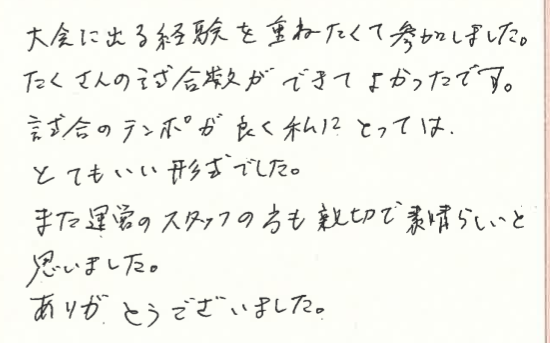 大会に出る経験を重ねたくて参加しました。
たくさんの試合数ができてよかったです。
試合のテンポが良く私にとっては、
とてもいい形式でした。
また運営のスタッフの方も親切で素晴らしいと
思いました。
ありがとうございました。